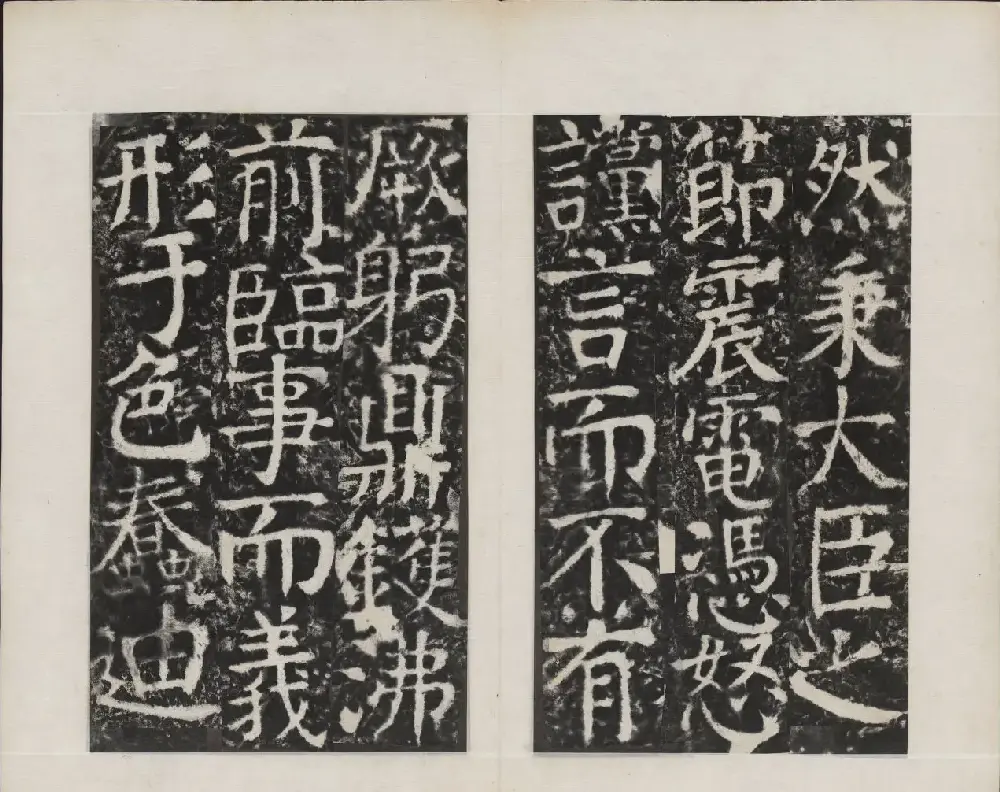 然秉大臣之
節震電憑怒
讜言而不有
厥躬鼎鑊沸
前臨事而義
形于色蠢迪